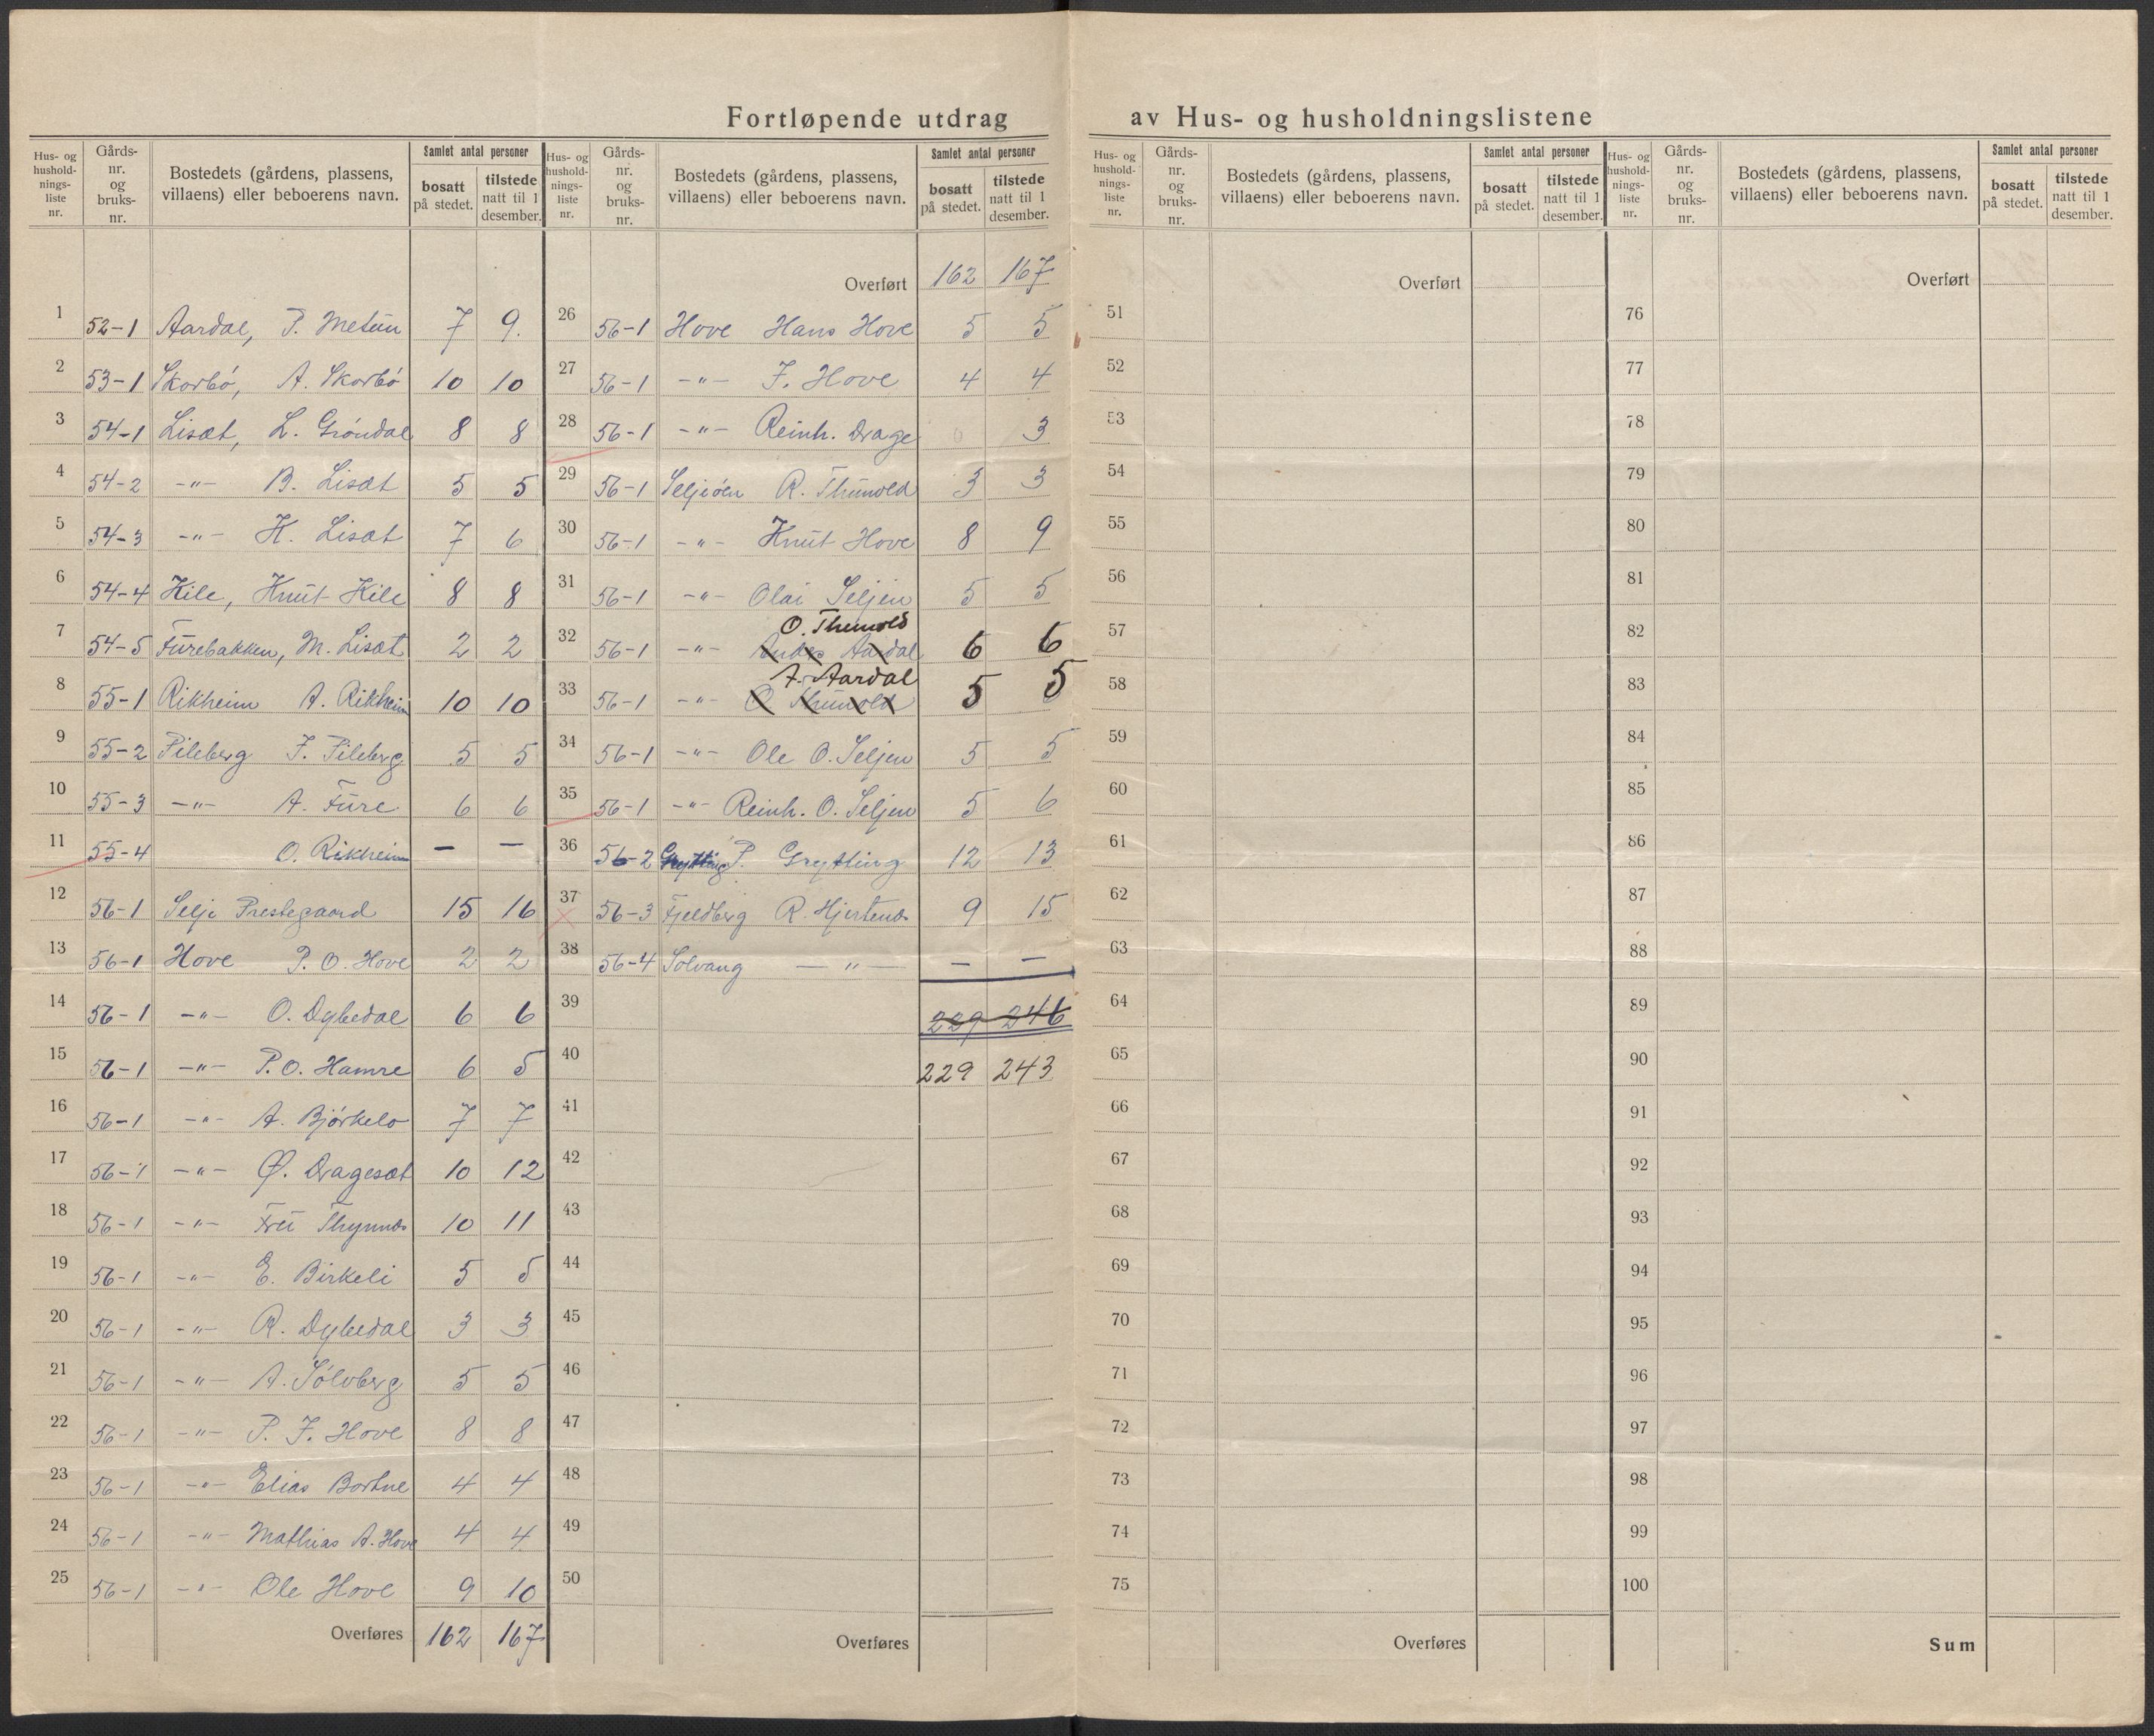 Fortløpende utdrag av Hus- og husholdningslistene
Hus- og hushold- nings- liste nr.
Gårds- nr. og bruks- nr.
Bostedets (gårdens, plassens, villaens) eller beboerens navn.
Samlet antal personer
bosatt på stedet.
tilstede natt til 1 desember.
1 52-1 Aardal, P. Metün 7 9.
2 53-1 Skorbó, A. Skorbó 10 10
3 54-1 Lisæt, L. Gróndal 8 8
4 54-2 -"- B. Lisæt 5 5
5 54-3 -"- K. Lisæt 7 6
6 54-4 Hile, Knut Hile 8 8
7 54-5 Fürebakken, M. Lisæt 2 2
8 55-1 Rikheim A. Rikheim 10 10
9 55-2 Pileberg J. Pileberg 5 5
10 55-3 -"- A. Füre 6 6
11 55-4 O. Rikheim - -
12 56-1 Selje Prestegaard 15 16
13 56-1 Hove P. O. Hove 2 2
14 56-1 -"- O. Dybedal 6 6
15 56-1 -"- P. O. Hamre 6 5
16 56-1 -"- A. Bjórkelo 7 7
17 56-1 -"- Ø. Dragesæt 10 12
18 56-1 -"- Frü Thynnæs 10 11
19 56-1 -"- E. Birkeli 5 5
20 56-1 -"- R. Dybedal 3 3
21 56-1 -"- A. Sólvberg 5 5
22 56-1 -"- P. J. Hove 8 8
23 56-1 -"- Elias Bortne 4 4
24 56-1 -"- Mathias A. Hove 4 4
25 56-1 -"- Ole Hove 9 10
Overføres 162 167
Hus- og hushold- nings- liste nr.
Gårds- nr. og bruks- nr.
Bostedets (gårdens, plassens, villaens) eller beboerens navn.
Samlet antal personer
bosatt på stedet.
tilstede natt til 1 desember.
Overført 162 167
26 56-1 Hove Hans Hove 5 5
27 56-1 -"- J. Hove 4 4
28 56-1 -"- Reinh. Drage 0 3
29 56-1 Seljeöen R. Thünold 3 3
30 56-1 -"- Knüt Hove 8 9
31 56-1 -"- Olai Seljen 5 5
O. Thunold
32 56-1 -"- Aardal 6 6
A. Aardal
33 56-1 -"- O. Thünold 5 5
34 56-1 -"- Ole O. Seljen 5 5
35 56-1 -"- Reinh. O. Seljen 5 6
36 56-2 Grytting P. Grytting 12 13
37 56-3 Fjeldberg R. Hjertenæs 9 15
38 56-4 Solvang -"- - -
39 229 246
40 229 243
41
42
43
44
45
46
47
48
49
50
Overføres
Hus- og hushold- nings- liste nr.
Gårds- nr. og bruks- nr.
Bostedets (gårdens, plassens, villaens) eller beboerens navn.
Samlet antal personer
bosatt på stedet.
tilstede natt til 1 desember.
Overført
51
52
53
54
55
56
57
58
59
60
61
62
63
64
65
66
67
68
69
70
71
72
73
74
75
Overføres
Hus- og hushold- nings- liste nr.
Gårds- nr. og bruks- nr.
Bostedets (gårdens, plassens, villaens) eller beboerens navn.
Samlet antal personer
bosatt på stedet.
tilstede natt til 1 desember.
Overført
76
77
78
79
80
81
82
83
84
85
86
87
88
89
90
91
92
93
94
95
96
97
98
99
100
Sum